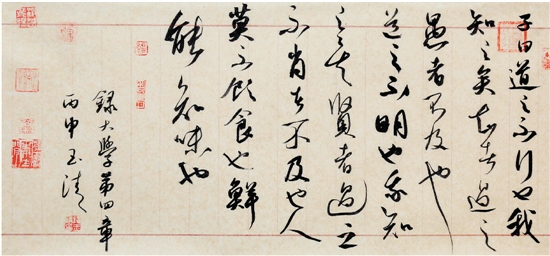 子曰道之不行也我
知之矣知者過之
愚者不及也
道之不明也我知
之矣賢者過之
不肖者不及也人
莫不飲食也鮮
能知味也
錄大學第四章
丙申玉清